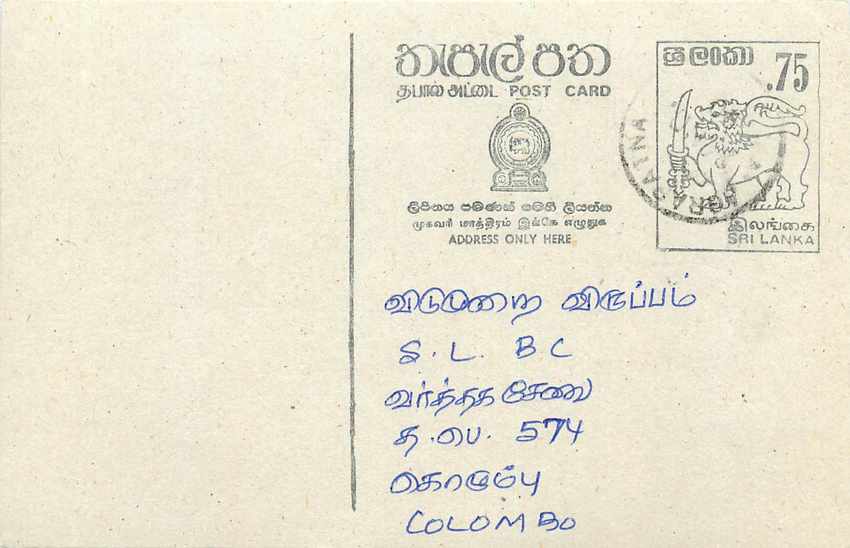 තැපැල් පත
தபால் அட்டை POST CARD
ලිපිනය පමණක් මෙහි ලියන්න
முகவரி மாத்திரம் இங்கே எழுதுக
ADDRESS ONLY HERE
ශ්‍රී ලංකා .75
இலங்கை
SRI LANKA
விடுமுறை விருப்பம்
S. L. B C
வர்த்தக சேவை
த. பெ. 574
கொழும்பு
COLOMBO